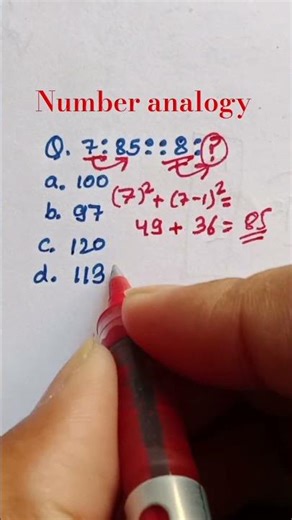 Number analogy
Q. 7:85::8:?
a. 100
(7)²+(7-1)²=
b. 97
49+36=85
c. 120
d. 113